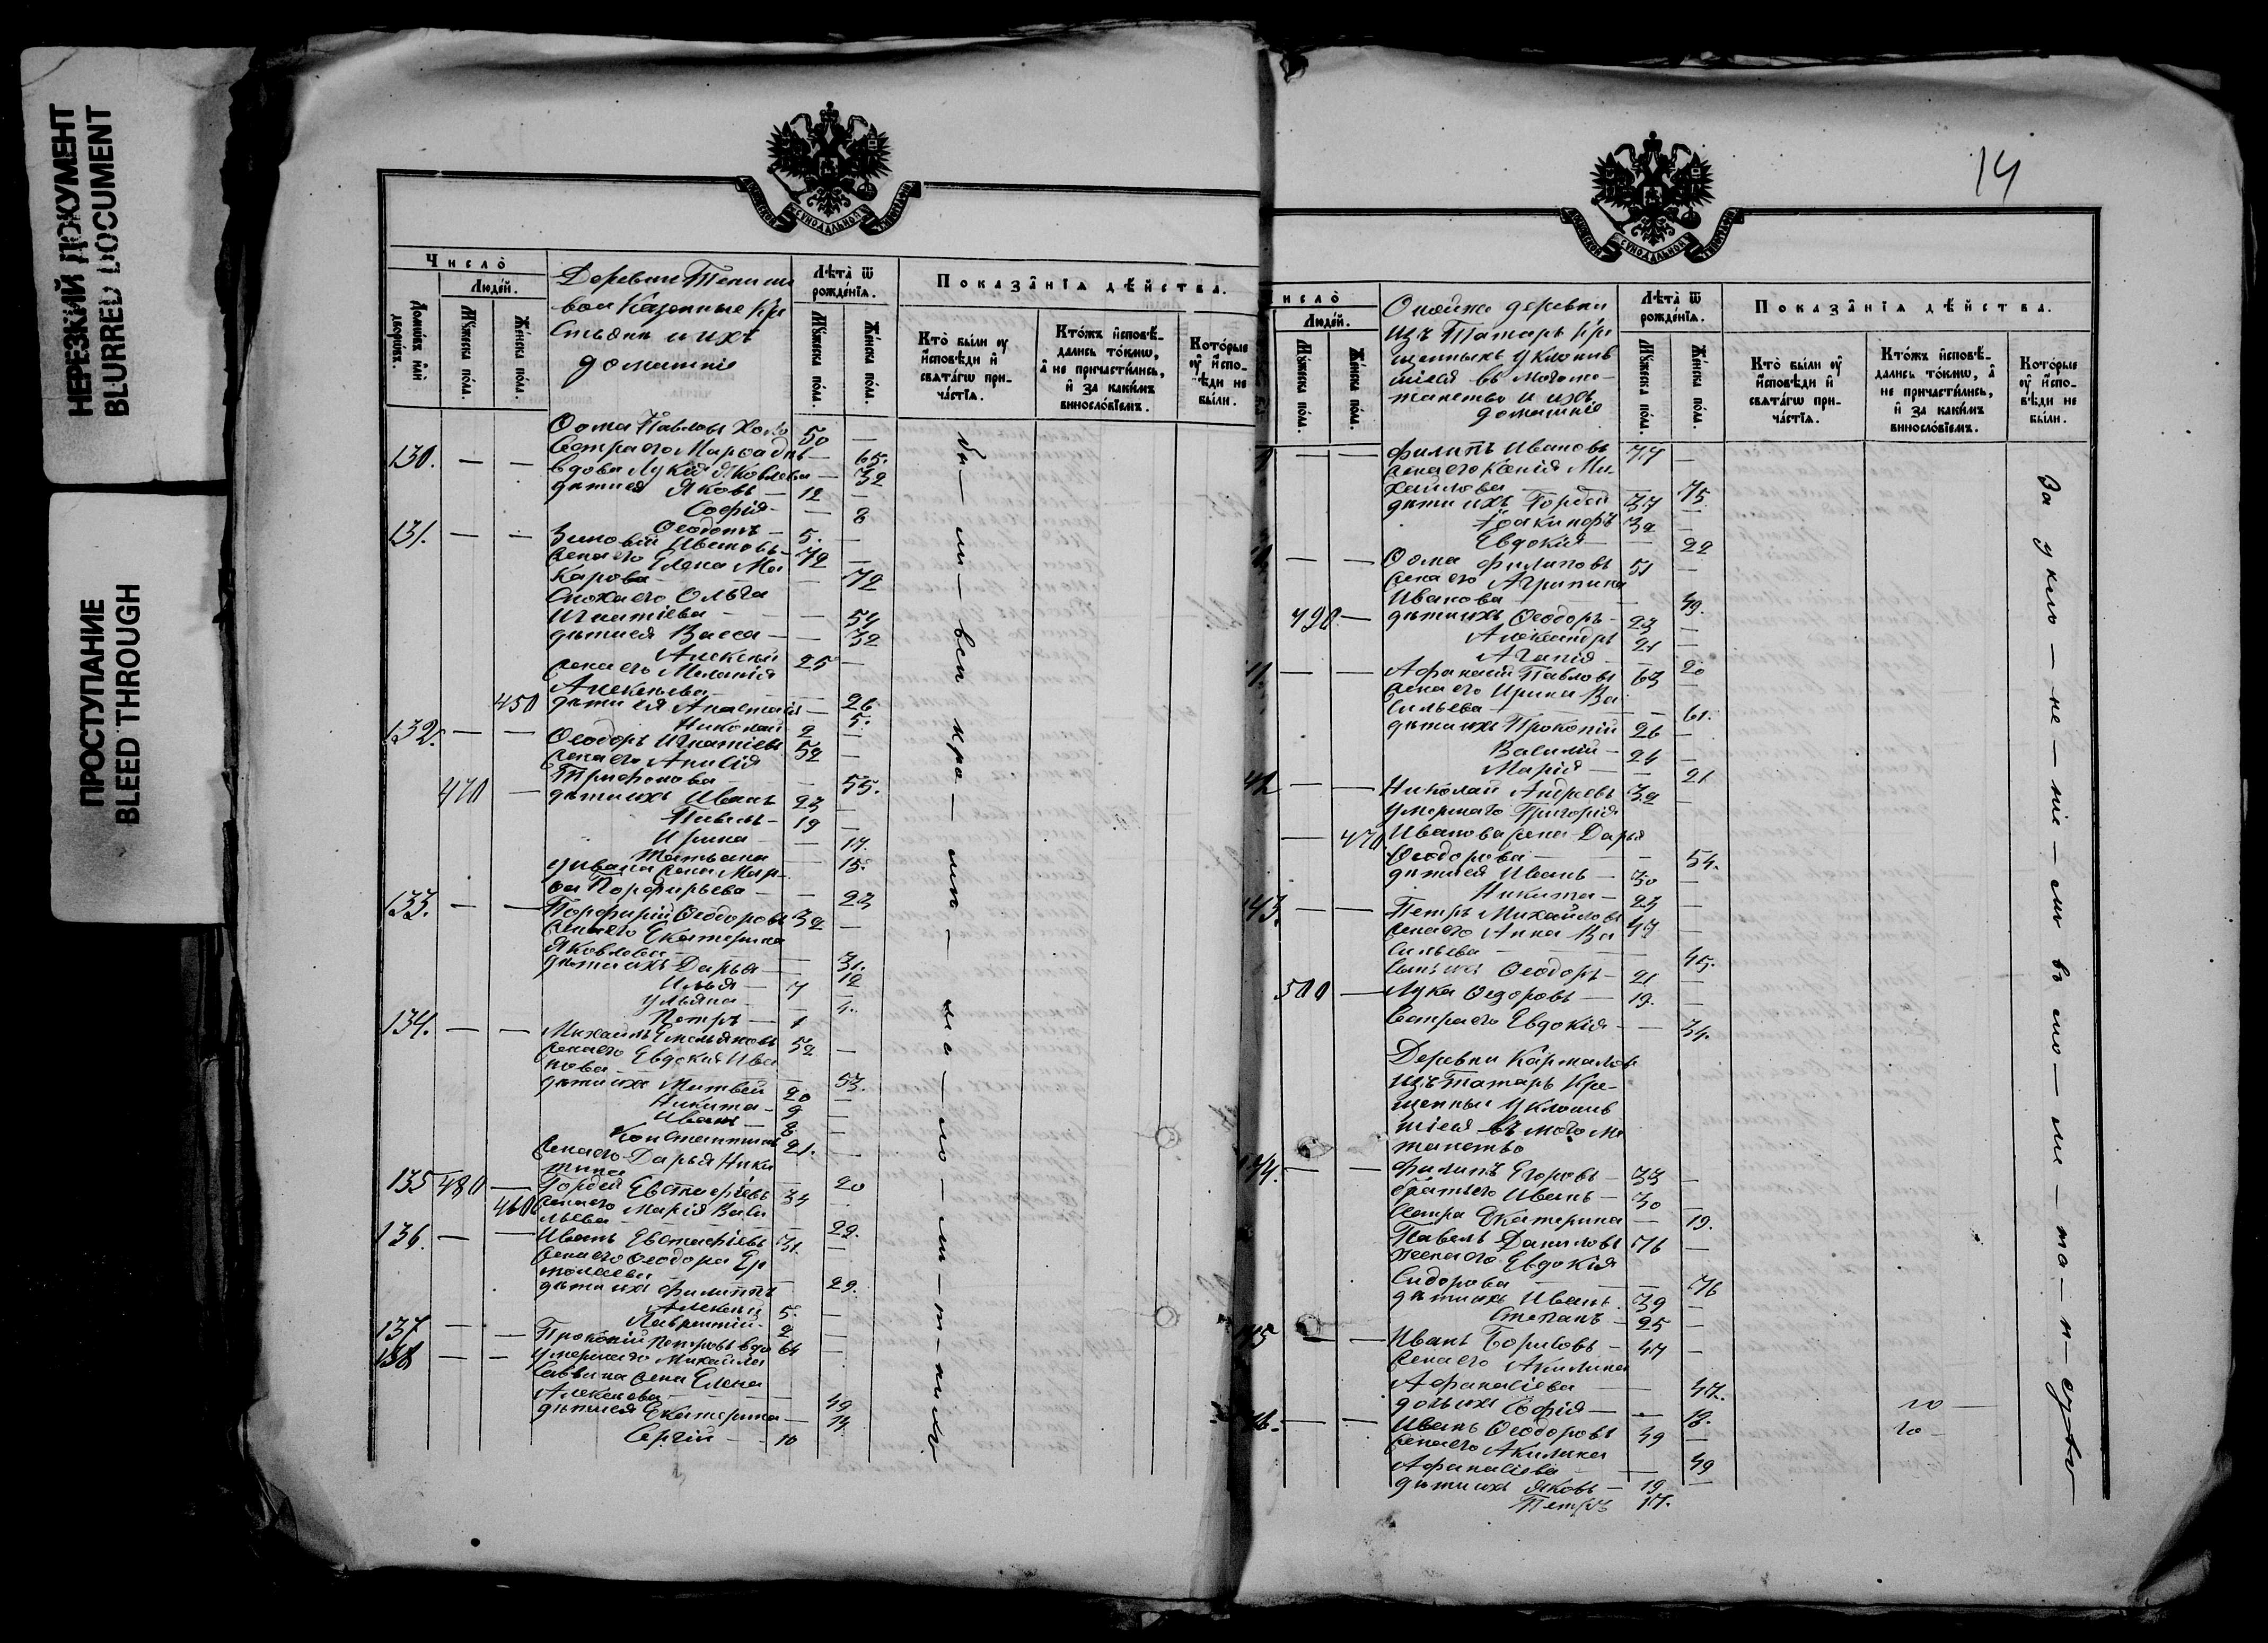 НЕРЕЗКИЙ ДОКУМЕНТ
BLURRED DOCUMENT
ПРОСТУПАНИЕ
BLEED THROUGH
Число̀
Людей.
Домѡвъ или дворѡвъ.
Мꙋжеска пола.
Женска пола.
Деревни
вои Казенные Кре
стьяне и ихъ
домашніе
Лѣта̀ ѿ рождéнїѧ.
Мꙋжеска пола.
Женска пола.
Показáнїѧ дѣ́йства.
Ктò были оу҆ и҆сповѣди и҆ свѧтáгѡ причáстїѧ.
Ктóжъ и҆сповѣ́дались тóкмѡ, а҆ не причасти́лись, и҆ за каки́мъ винослóвїемъ.
Котóрые оу҆ и҆сповѣди не были.
Ѳома Павловъ 50 —
Сестра его Марѳа — 65.
130. — — вдова Лукія Яковлева — 32
дѣти ея Яковъ — 12 —
Софія — — 8
Ѳеодотъ — 5. —
131. — — Зиновій Ивановъ — 72 —
жена его Елена Ма
карова — — 72
Сноха его Ольга
Игнатіева — — 54
дѣти ея Васса — — 32
Алексѣй 25 —
жена его Меланія
Алексѣева — — 26
450 дѣти ея Анастасія — 5.
Николай 2 —
132. — — Ѳеодоръ Игнатіевъ 52 —
жена его Анисія
Трифонова — — 55.
470 — дѣти ихъ Иванъ 23 —
Павелъ — 19 —
Ирина — — 17.
Татьяна — 15.
у Ивана жена Мар
ѳа Порфирьева — — 23
133. — — Порфирій Ѳеодоровъ 32 —
жена его Екатерина
Яковлева — — 31.
дѣти ихъ Дарья — — 12
Илья — 7 —
Ульяна — — 4.
Петръ — 1 —
134. — — Михаилъ Емельяновъ 52 —
жена его Евдокія Ива
нова — — 53.
дѣти ихъ Матвей 20 —
Никита — 9 —
Иванъ — 8 —
Константинъ 21. —
жена его Дарья Ники
тина — 20
135 480 — Гордей Евстафіевъ 34 —
460 жена его Марія Васи
льева — — 29.
136. — — Иванъ Евстафіевъ 31. —
жена его Ѳеодора Ер
молаева — 29.
дѣти ихъ Филиппъ
Алексѣй 5. —
Лаврентій 2 —
137 — — Прокопій Петровъ вдо 64 —
138 — — умершаго Михаила
Саввина жена Елена
Алексѣева — — 49
дѣти ея Екатерина — 14
Сергій — 10
Бы — ли — всѣ
14
Число̀
Людей.
Мꙋжеска пола.
Женска пола.
Оной же деревни
изъ Татаръ Кре
щенныхъ уклонив
шіеся въ магоме
танство и ихъ
домашніе
Лѣта̀ ѿ рождéнїѧ.
Мꙋжеска пола.
Женска пола.
Показáнїѧ дѣ́йства.
Ктò были оу҆ и҆сповѣди и҆ свѧтáгѡ причáстїѧ.
Ктóжъ и҆сповѣ́дались тóкмѡ, а҆ не причасти́лись, и҆ за каки́мъ винослóвїемъ.
Котóрые оу҆ и҆сповѣди не были.
— — Филипъ Ивановъ 77 —
жена его Ксенія Ми
хайлова — — 75
дѣти ихъ Гордей 37 —
Іоакинфъ 32 —
Евдокія — — 22
— — Ѳома Филиповъ 51 —
жена его Агрипина
Иванова — — 49.
490 — дѣти ихъ Ѳеодоръ — 23 —
Александръ 21 —
Агапія — — 20
— — Афанасій Павловъ 63 —
жена его Ирина Ва
сильева — — 61.
дѣти ихъ Прокопій 26 —
Василій — 24 —
Марія — — 21
— — Николай Андреевъ 32 —
умершаго Григорія
— 470 Иванова жена Дарья
Ѳеодорова — — 54.
дѣти ея Иванъ — 30 —
Никита — 23 —
143. — — Петръ Михайловъ 47 —
жена его Анна Ва
сильева — — 45.
сынъ ихъ Ѳеодоръ — 21 —
500 — Лука Ѳедоровъ — 19. —
Сестра его Евдокія — — 34.
Деревни Кармалов
изъ Татаръ Кре-
щенныи уклонив
шіеся въ могоме
танство
144. — — Филипъ Егоровъ — 33 —
братъ его Иванъ — 30 —
Сестра Екатерина — 19.
Павелъ Даниловъ 76 —
жена его Евдокія
Сидорова — — 76
дѣти ихъ Иванъ. 39 —
Степанъ — 25 —
145 — — Иванъ Борисовъ — 47 —
жена его Акилина
Афанасіева — — 47.
дочь ихъ Софія — — 18.
— — Иванъ Ѳеодоровъ 49 —
жена его Акилина
Афанасіева — — 49
дѣти ихъ Яковъ — 19 —
Петръ 17.
За укло — не — ніе — мъ въ мо — ме — та — н — ство